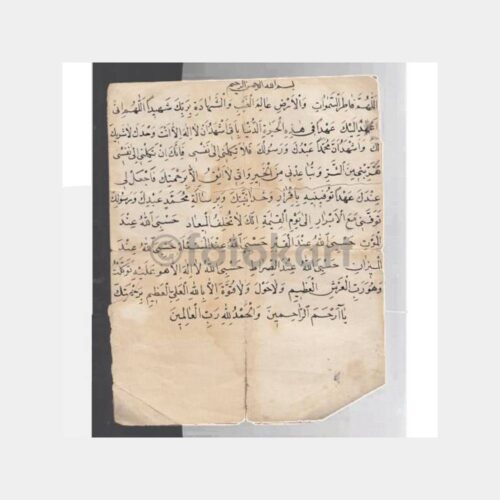 بسم الله الرحمن الرحيم
اللهم فاطر السموات والارض عالم الغيب والشهادة بربك شهيدا اللهم انى
اعهد اليك عهدا فى هذه الحيوة الدنيا بانى اشهد ان لا اله الا انت وحدك لا شريك
لك واشهد ان محمدا عبدك ورسولك فلا تكلنى الى نفسى فانك ان تكلنى الى نفسى
تقربنى من الشر وتباعدنى من الخير وانى لا اثق الا برحمتك فاجعل لى
عندك عهدا توفينيه باقرار وحدانيتك وبرسالة محمد عبدك ورسولك
توفنى مع الابرار الى يوم القيمة انك لا تخلف الميعاد حسبى الله عند
الموت حسبى الله عند القبر حسبى الله عند
الميزان حسبى الله عند الصراط حسبى الله لا اله الا هو عليه توكلت
وهو رب العرش العظيم ولا حول ولا قوة الا بالله العلى العظيم برحمتك
يا ارحم الراحمين والحمد لله رب العالمين
©fotokart